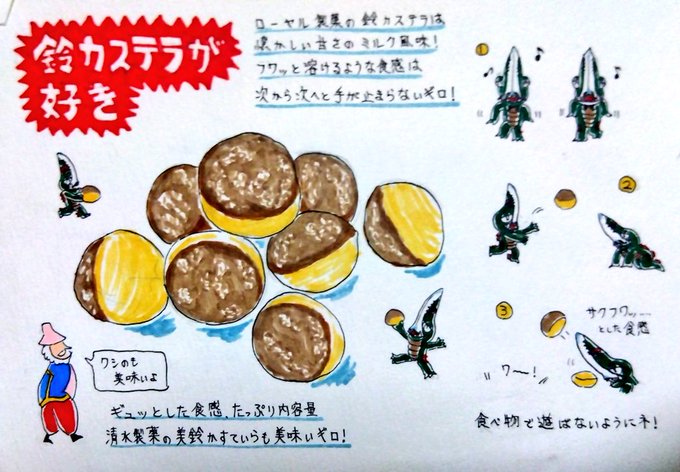 鈴カステラが
好き
ローヤル製菓の鈴カステラは
懐かしい甘さのミルク風味!
フワッと溶けるような食感は
次から次へと手が止まらないギロ!
①
②
③
サクフワッ……
とした食感
ワー!
ワシのも
美味いよ
ギュッとした食感、たっぷり内容量
清水製菓の美鈴かすていらも美味いギロ!
食べ物で遊ばないようにネ!